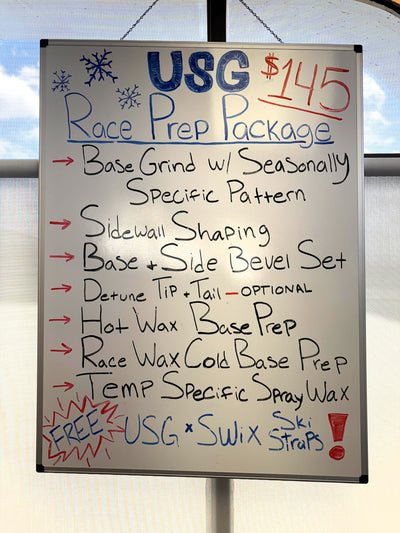 USG $145
Race Prep Package
→ Base Grind w/ Seasonally
Specific Pattern
→ Sidewall Shaping
→ Base + Side Bevel Set
→ Detune Tip + Tail - OPTIONAL
→ Hot Wax Base Prep
→ Race Wax Cold Base Prep
→ Temp Specific Spray Wax
FREE USG x SWiX Ski
Straps!